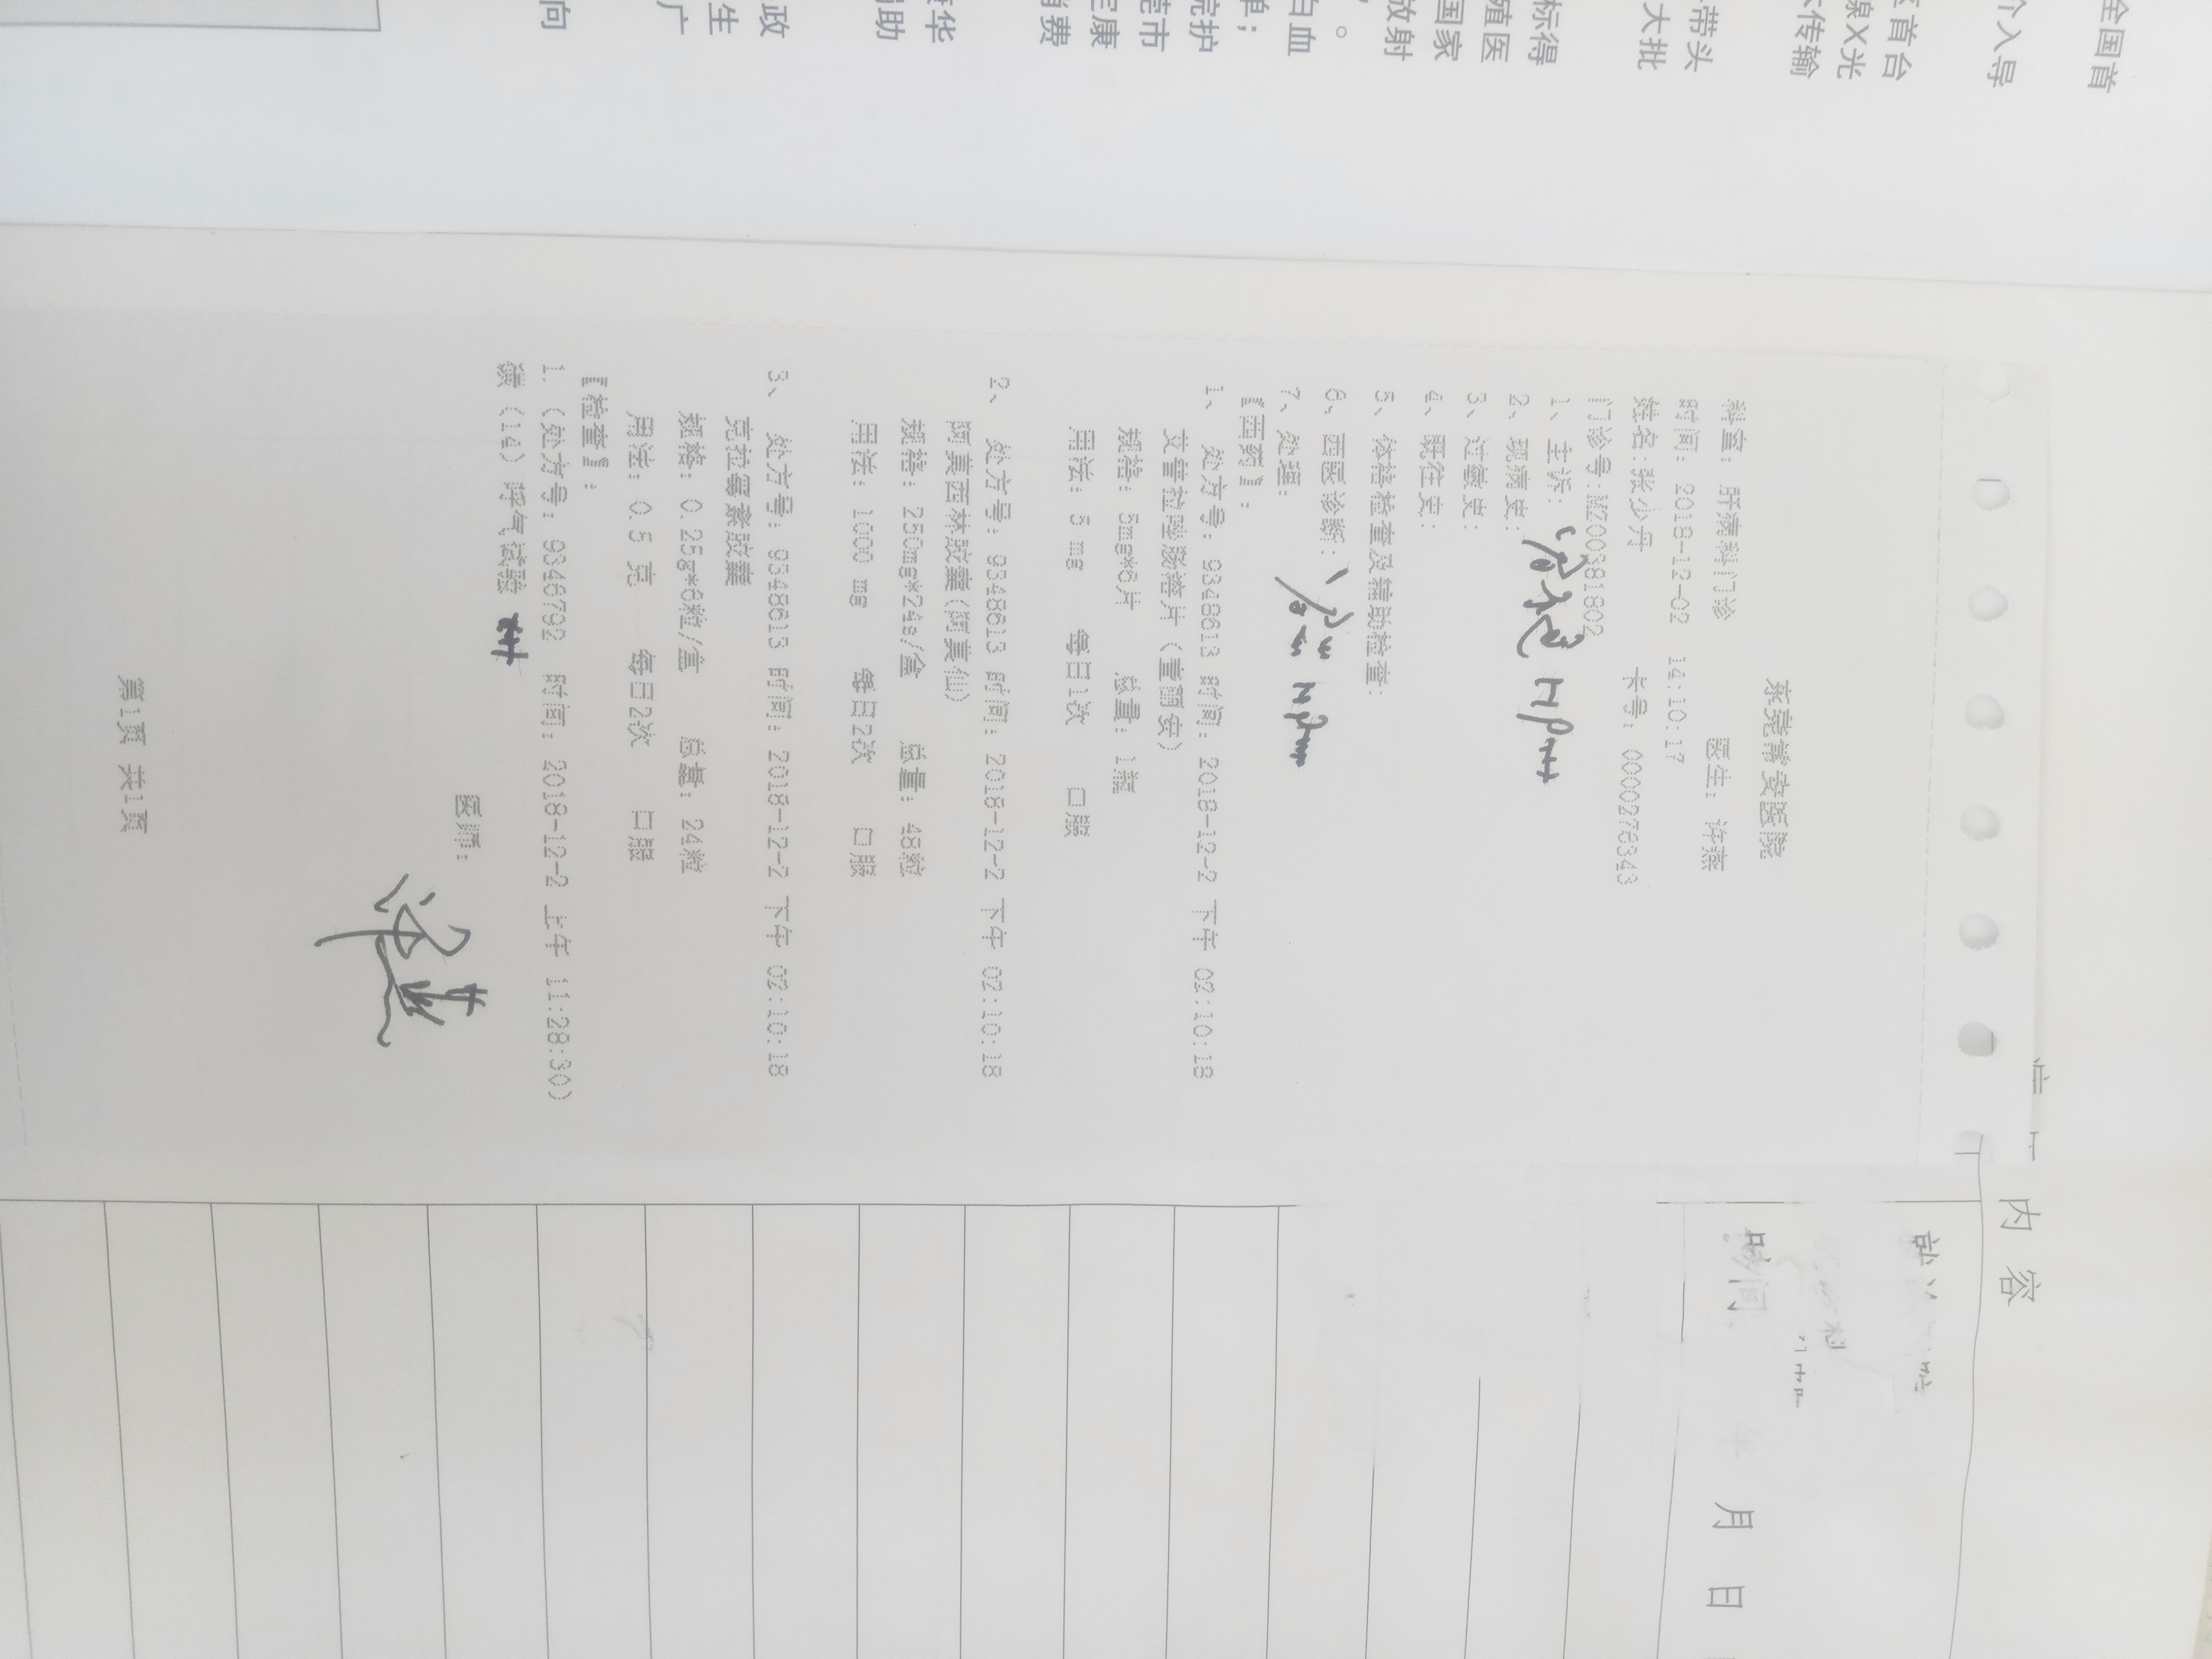 全国首
介入导
首台
腺X光
传输
带头
大批
标得
殖医
国家
放射
。
白血
单；
院护
莞市
定康
消费
华
助
政
生
广
向
东莞常安医院
科室：肝病科门诊 医生：许燕
时间：2018-12-02 14:10:17
姓名：张少丹 卡号：0000276343
门诊号：MZ00381802
1、主诉：
2、现病史：
3、过敏史：
4、既往史：
5、体格检查及辅助检查：
6、西医诊断：
7、处理：
【西药】：
1、处方号：9348613 时间：2018-12-2 下午 02:10:18
艾普拉唑肠溶片（壹丽安）
规格：5mg*6片 总量：1瓶
用法：5 mg 每日1次 口服
2、处方号：9348613 时间：2018-12-2 下午 02:10:18
阿莫西林胶囊（阿莫仙）
规格：250mg*24s/盒 总量：48粒
用法：1000 mg 每日2次 口服
3、处方号：9348613 时间：2018-12-2 下午 02:10:18
克拉霉素胶囊
规格：0.25g*6粒/盒 总量：24粒
用法：0.5 克 每日2次 口服
【检查】：
1.（处方号：9346792 时间：2018-12-2 上午 11:28:30）
碳（14）呼气试验 +++
医师：
第1页 共1页
内 容
年 月 日